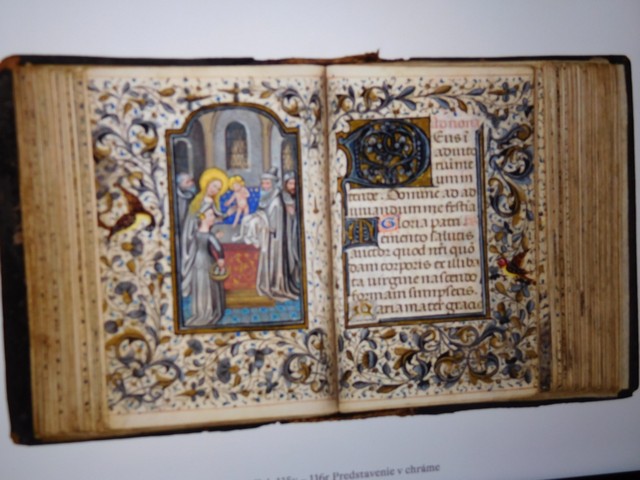 Eus ī
adiuto
riū inte
um in
tende. Domine ad ad
iuuandum me festīa
Gloria patri
Memento salutis
auctor quod nr̄i quō
dam corporis ex illiba
ta uirgine nascendo
formam sumpseris.
Maria mater graci
116r Predstavenie v chráme